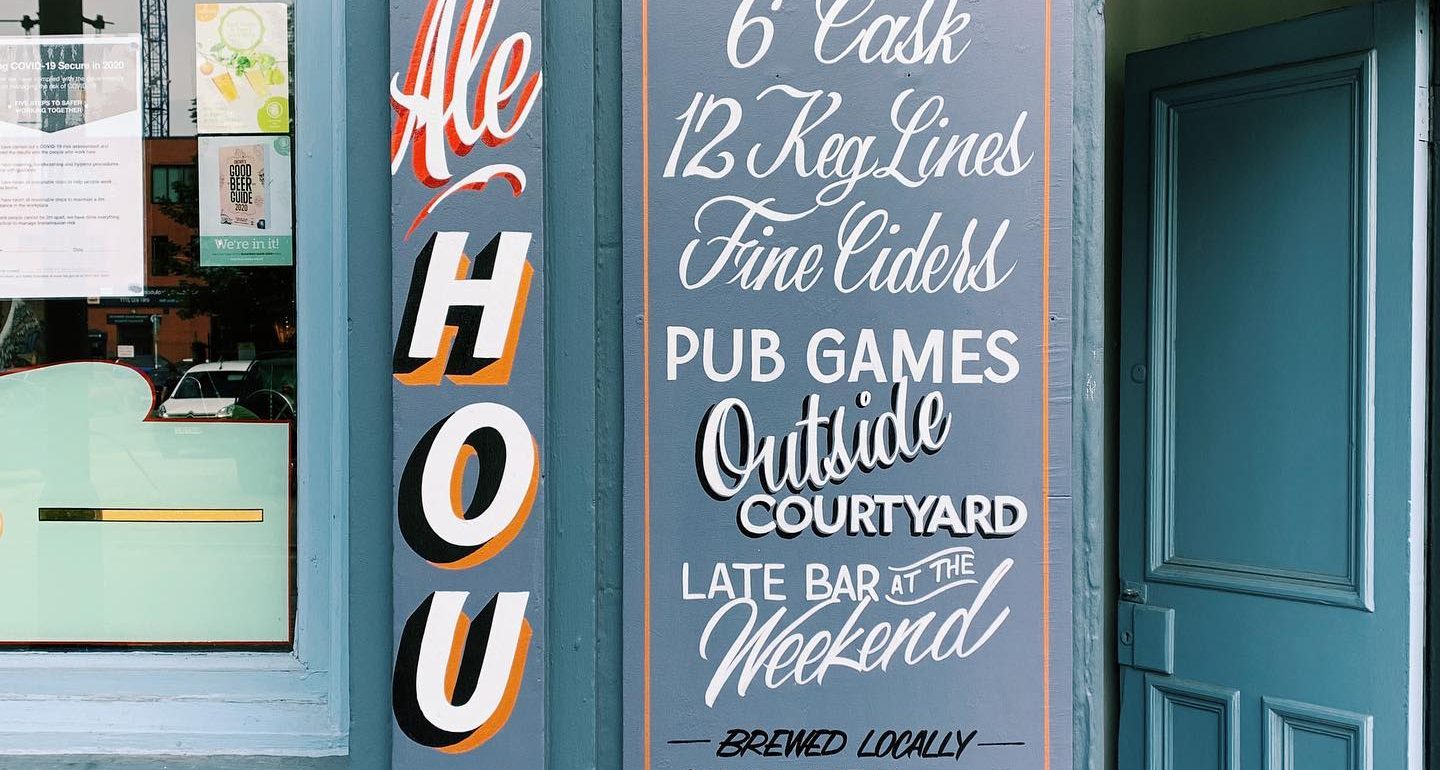 ng COVID-19 Secure in 2020
FIVE STEPS TO SAFER
WORKING TOGETHER
GOOD
BEER
GUIDE
2020
We're in it!
Ale
HOU
6 Cask
12 Keg Lines
Fine Ciders
PUB GAMES
Outside
COURTYARD
LATE BAR AT THE
Weekend
BREWED LOCALLY